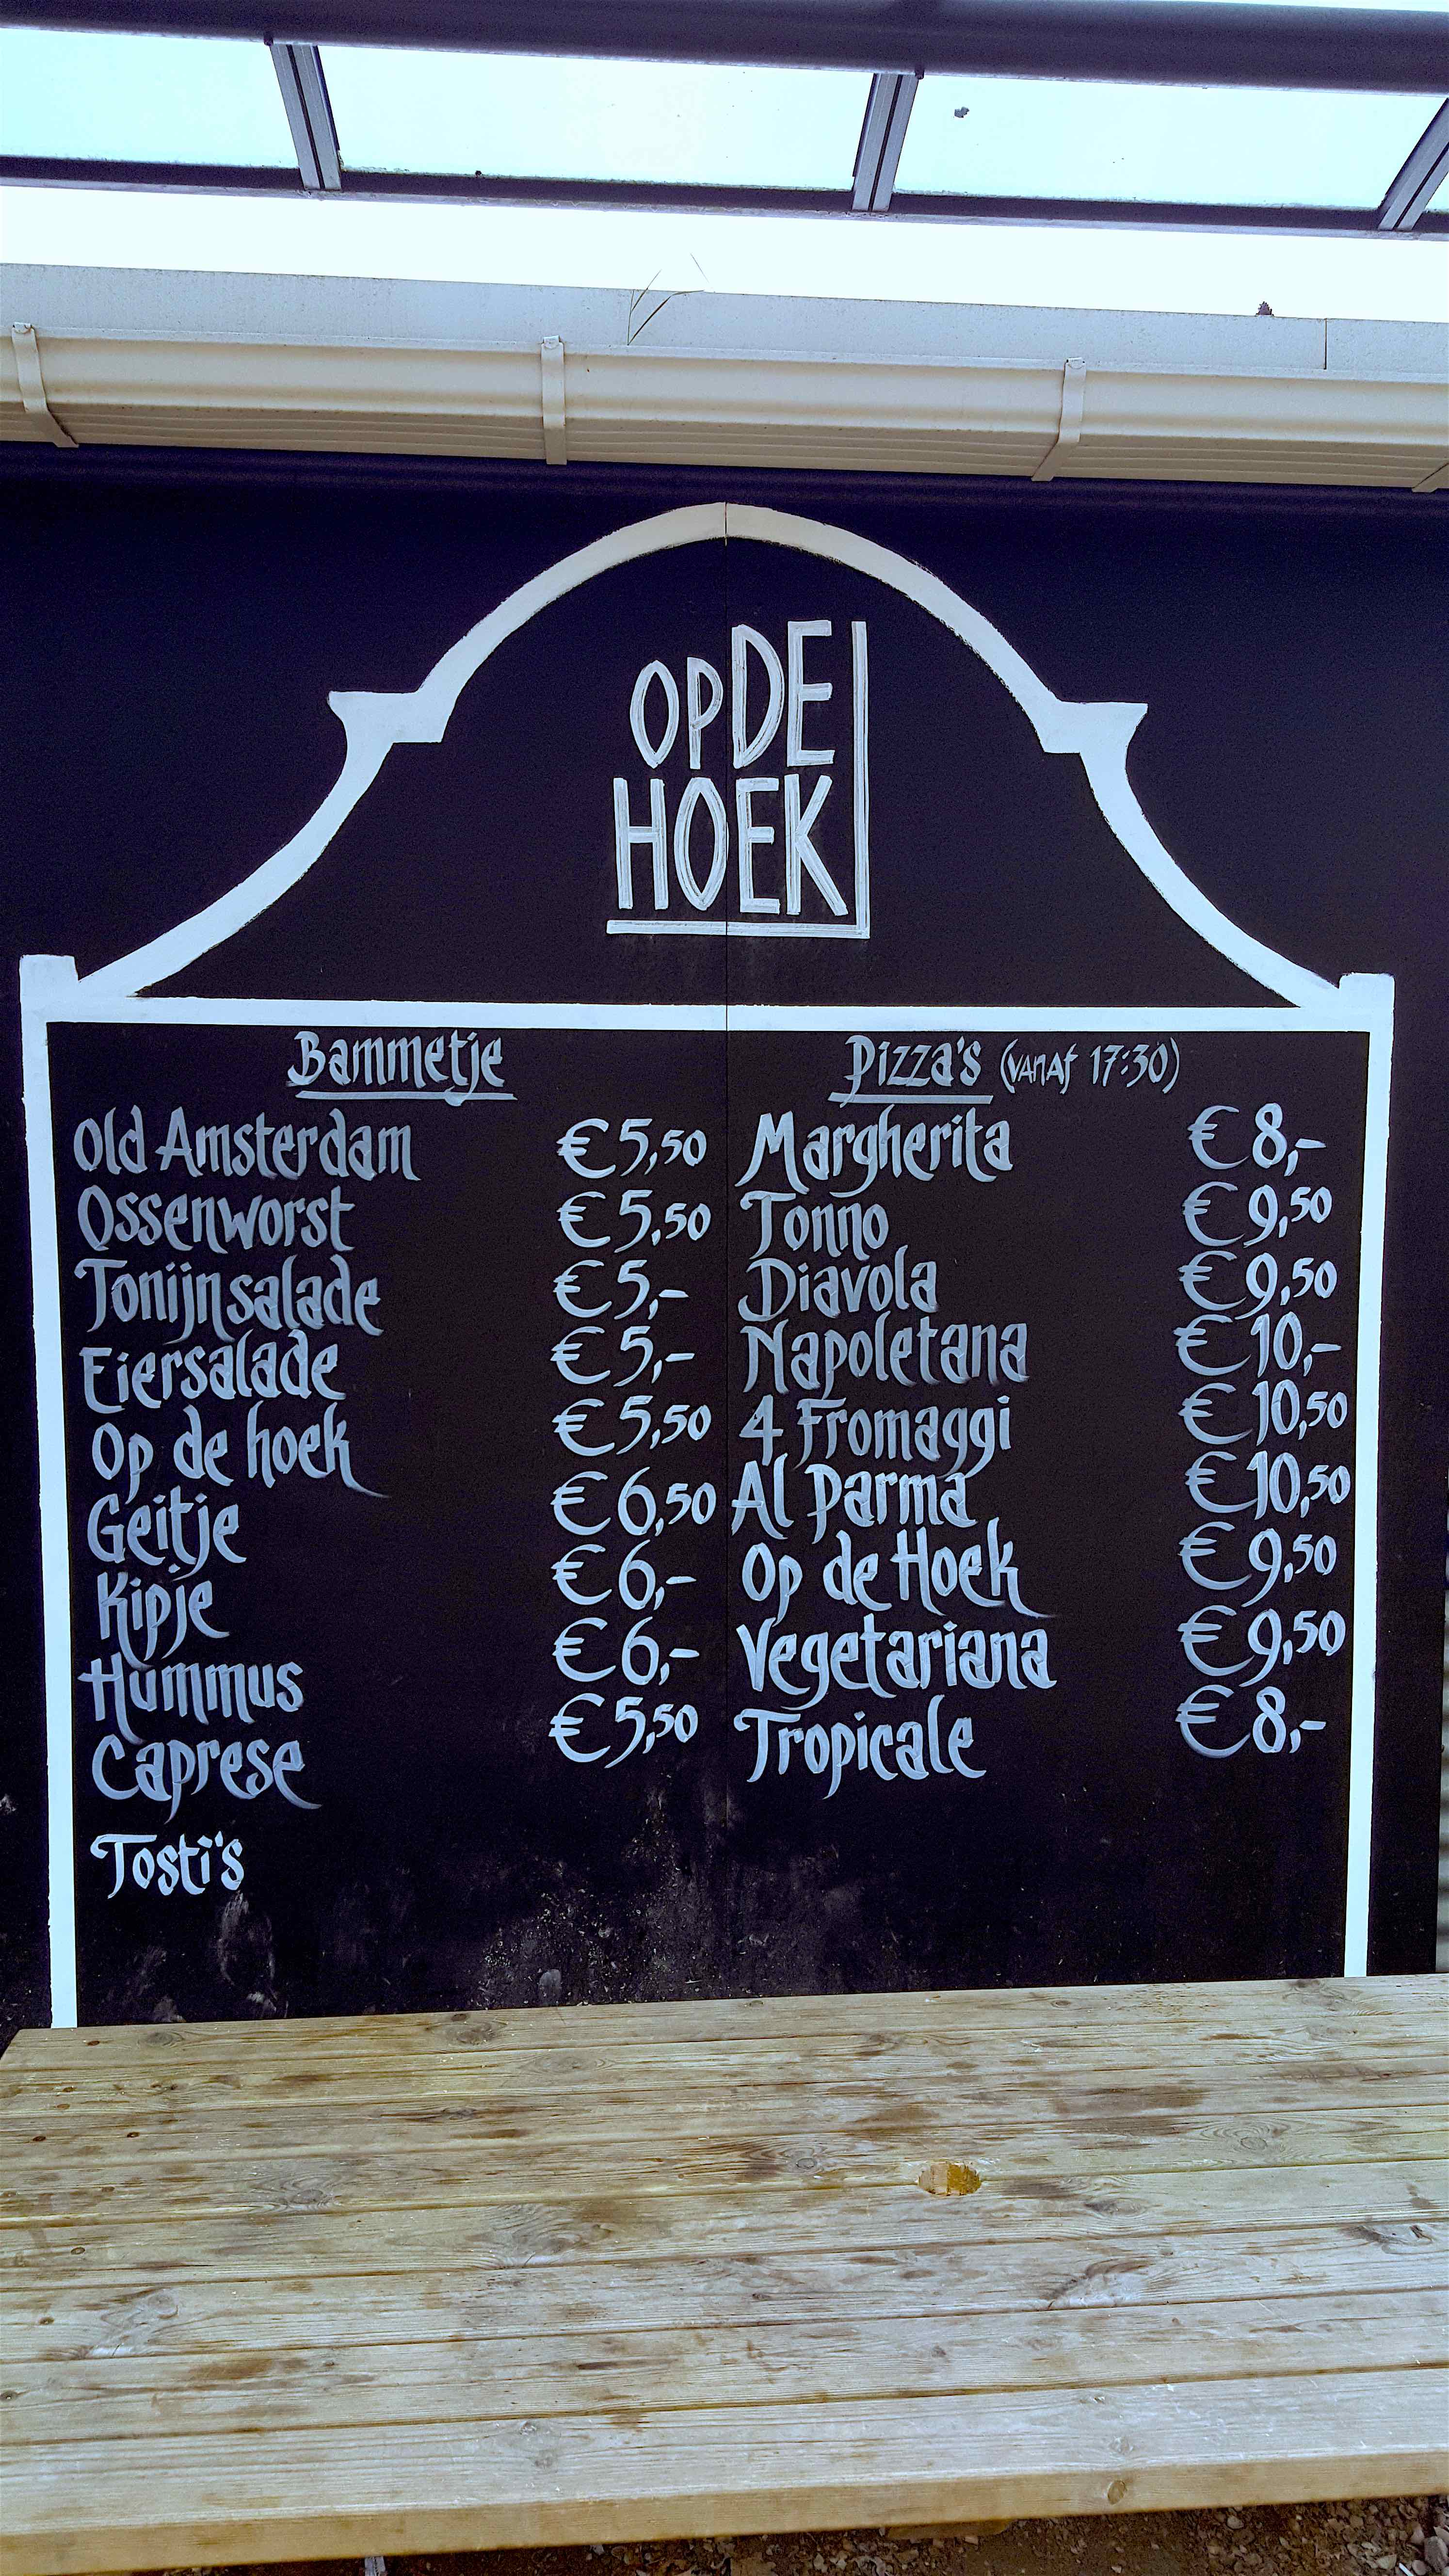 OP DE
HOEK
Bammetje
Old Amsterdam € 5,50
Ossenworst € 5,50
Tonijnsalade € 5,-
Eiersalade € 5,-
Op de hoek € 5,50
Geitje € 6,50
Kipje € 6,-
Hummus € 6,-
Caprese € 5,50
Tosti's
Pizza's (vanaf 17:30)
Margherita € 8,-
Tonno € 9,50
Diavola € 9,50
Napoletana € 10,-
4 Fromaggi € 10,50
Al Parma € 10,50
Op de Hoek € 9,50
Vegetariana € 9,50
Tropicale € 8,-